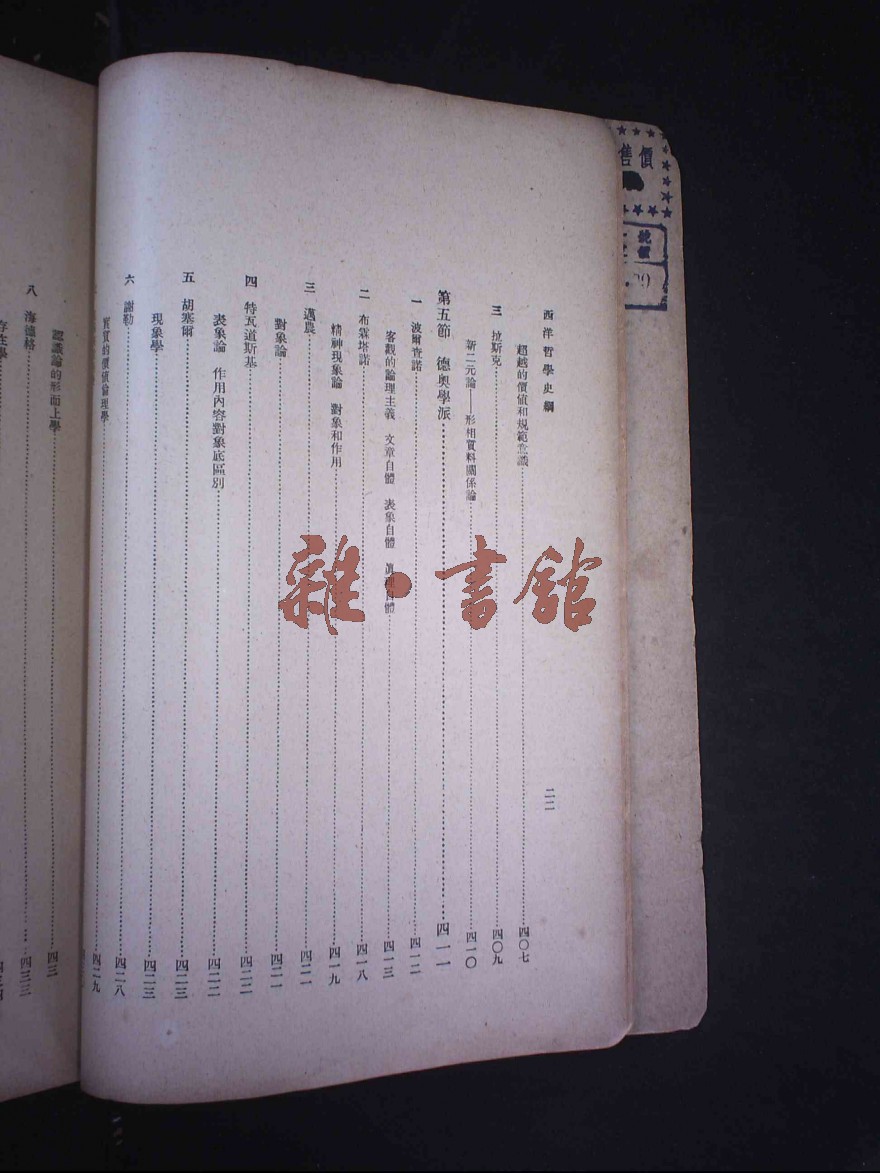 西洋哲學史綱
二二
超越的價値和規範意識 四〇七
三 拉斯克 四〇九
新二元論——形相質料關係論 四一〇
第五節 德奧學派 四一一
一 波爾查諾 四一二
客觀的論理主義 文章自體 表象自體 四一三
二 布霖塔諾 四一八
精神現象論 對象和作用 四一九
三 邁農 四二一
對象論 四二一
四 特瓦道斯基 四二二
表象論 作用內容對象底區別 四二二
五 胡塞爾 四二三
現象學 四二三
六 謝勒 四二八
實質的價値倫理學 四二九
認識論的形而上學
八 海德格 四三三
存在學
售價
雜·書館